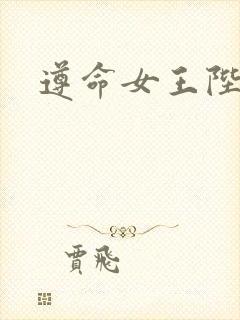 遵命女王陛
賈飛